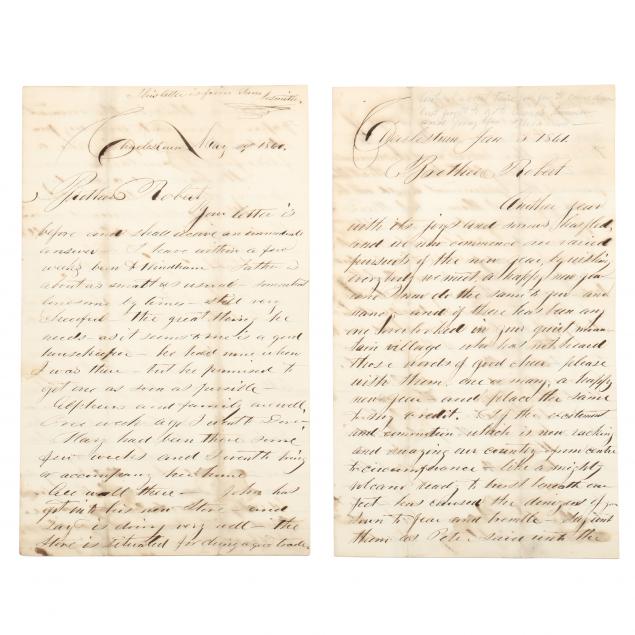 This letter is from
Smith
May 1860
Brother Robert,
Your letter is
before and shall receive an immediate
answer. I have within a few
weeks been to Windham - Father is
about as smart as usual - somewhat
lonesome by times - still very
cheerful - the great thing he
needs - as it seems to me is a good
housekeeper - he had none when
I was there - but he promised to
get one as soon as possible -
Alpheus and family are well,
One week ago I went to
Mary had been there some
few weeks and I went to bring
or accompany her home
All well there - John has
got into his new Store - and
Says is doing very well - the
Store is situated for doing a good trade,
Jan 1861.
Brother Robert
Another year
with its joys and sorrows has fled,
and we now commence the varied
pursuits of the new year, by wishing
everybody we meet a happy new year
and I now do the same to you and
and if there has been any
one overlooked in your quiet moun-
tain village who has not heard
those words of good cheer - please
wish them, one or many, a happy
new year - and place the same
to my credit. & If the excitement
and commotion which is now racking
and our country from centre
to circumference - like a mighty
volcano ready to burst beneath our
feet has caused the denizens of your
town to fear and tremble - Say unto
them as Peter said unto the